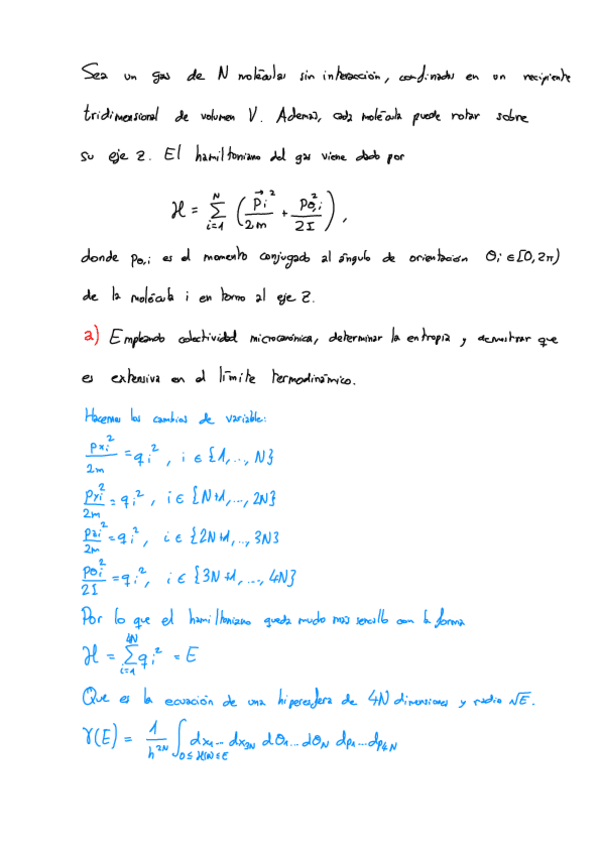 Sea un gas de N moléculas sin interacción, confinadas en un recipiente
tridimensional de volumen V. Además, cada molécula puede rotar sobre
su eje z. El hamiltoniano del gas viene dado por
H = Σ_{i=1}^{N} ( \vec{p}_i^2 / 2m + p_{θ,i}^2 / 2I ) ,
donde p_{θ,i} es el momento conjugado al ángulo de orientación θ_i ∈ [0,2π)
de la molécula i en torno al eje z.
a) Empleando colectividad microcanónica, determinar la entropía y demostrar que
es extensiva en el límite termodinámico.
Hacemos los cambios de variable:
p_{xi}^2 / 2m = q_i^2 , i ∈ {1,..., N}
p_{yi}^2 / 2m = q_i^2 , i ∈ {N+1,..., 2N}
p_{zi}^2 / 2m = q_i^2 , i ∈ {2N+1,..., 3N}
p_{θi}^2 / 2I = q_i^2 , i ∈ {3N+1, ..., 4N}
Por lo que el hamiltoniano queda mucho más sencillo con la forma
H = Σ_{i=1}^{4N} q_i^2 = E
Que es la ecuación de una hiperesfera de 4N dimensiones y radio √E.
γ(E) = 1 / h^{2N} ∫_{0≤H(N)≤E} dx_1... dx_{3N} dθ_1... dθ_N dp_1...dp_{4N}